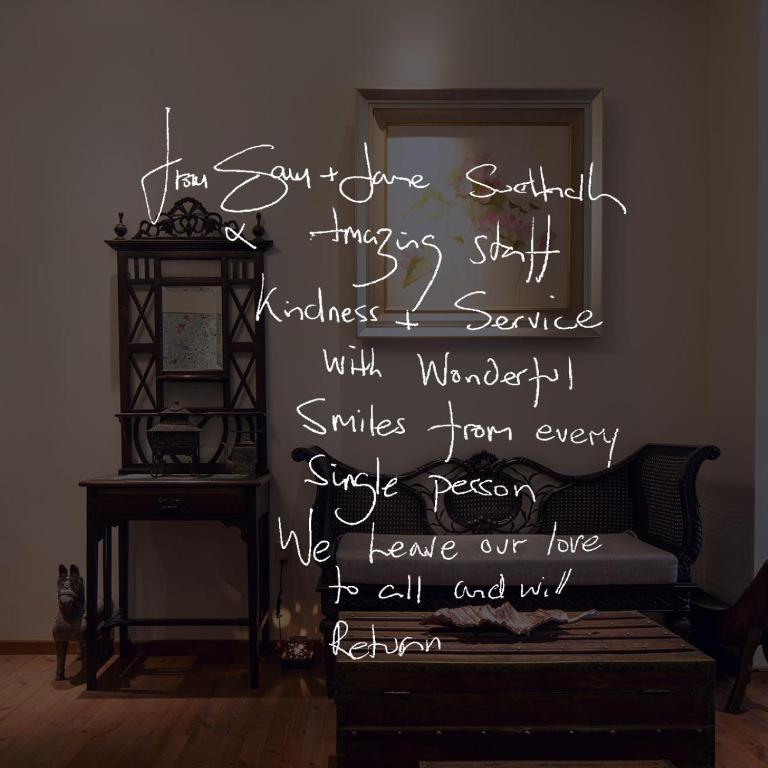 From Sam + Jane Scotland
& Amazing staff
Kindness + Service
with Wonderful
Smiles from every
Single person
We Leave our love
to all and will
Return